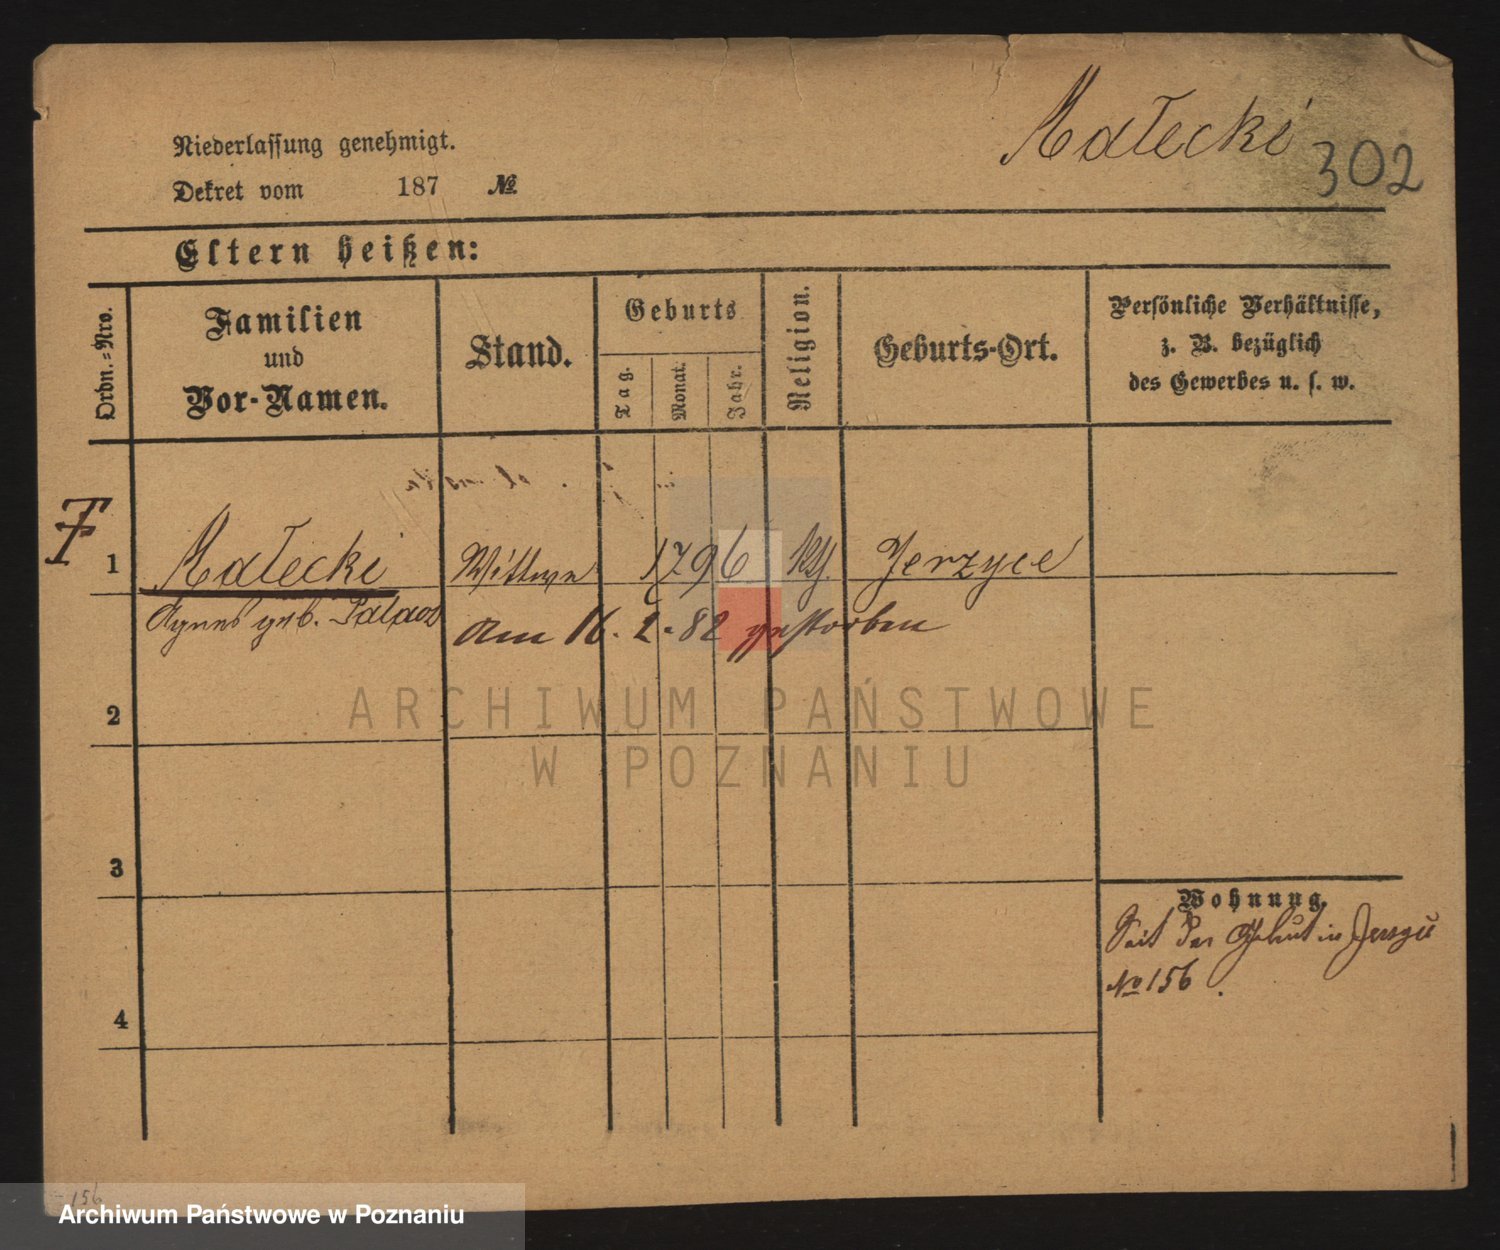 Małecki
302
Niederlassung genehmigt.
Dekret vom 187 №
Eltern heißen:
Ordn.=Nro.
Familien
und
Vor-Namen.
Stand.
Geburts
Tag.
Monat.
Jahr.
Religion.
Geburts-Ort.
Persönliche Verhältnisse,
z. B. bezüglich
des Gewerbes u. s. w.
1 Małecki Wittwe 1796 kth. Jerzyce
Agnes geb.
am 16. 2. 82 gestorben
2
3
4
Wohnung.
Seit der Geburt in
No 156
ARCHIWUM PAŃSTWOWE
W POZNANIU
156
Archiwum Państwowe w Poznaniu